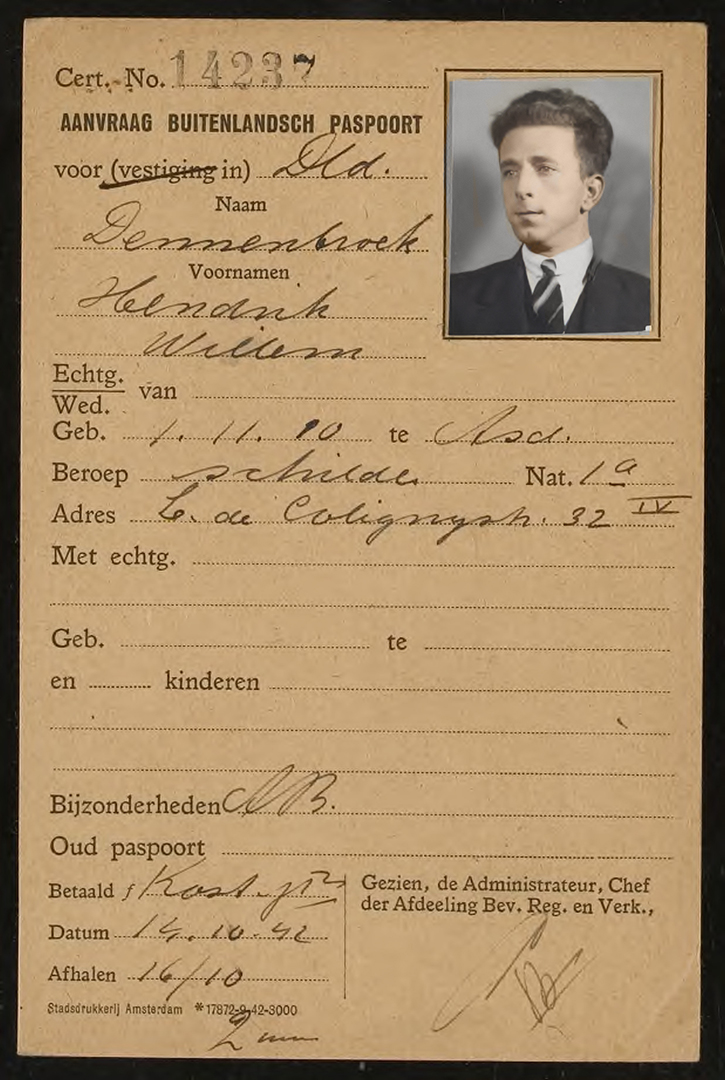 Cert. No. 14237
AANVRAAG BUITENLANDSCH PASPOORT
voor (vestiging in) Dld.
Naam
Dennenbroek
Voornamen
Hendrik
Willem
Echtg.
Wed. van
Geb. 1.11.10 te Asd.
Beroep schilder Nat. 1a
Adres L. de Colignystr. 32 IV
Met echtg.
Geb. te
en kinderen
Bijzonderheden AB.
Oud paspoort
Betaald f Kost.
Gezien, de Administrateur, Chef
der Afdeeling Bev. Reg. en Verk.,
Datum 14.10.42
Afhalen 16/10
Stadsdrukkerij Amsterdam *17872-9-42-3000